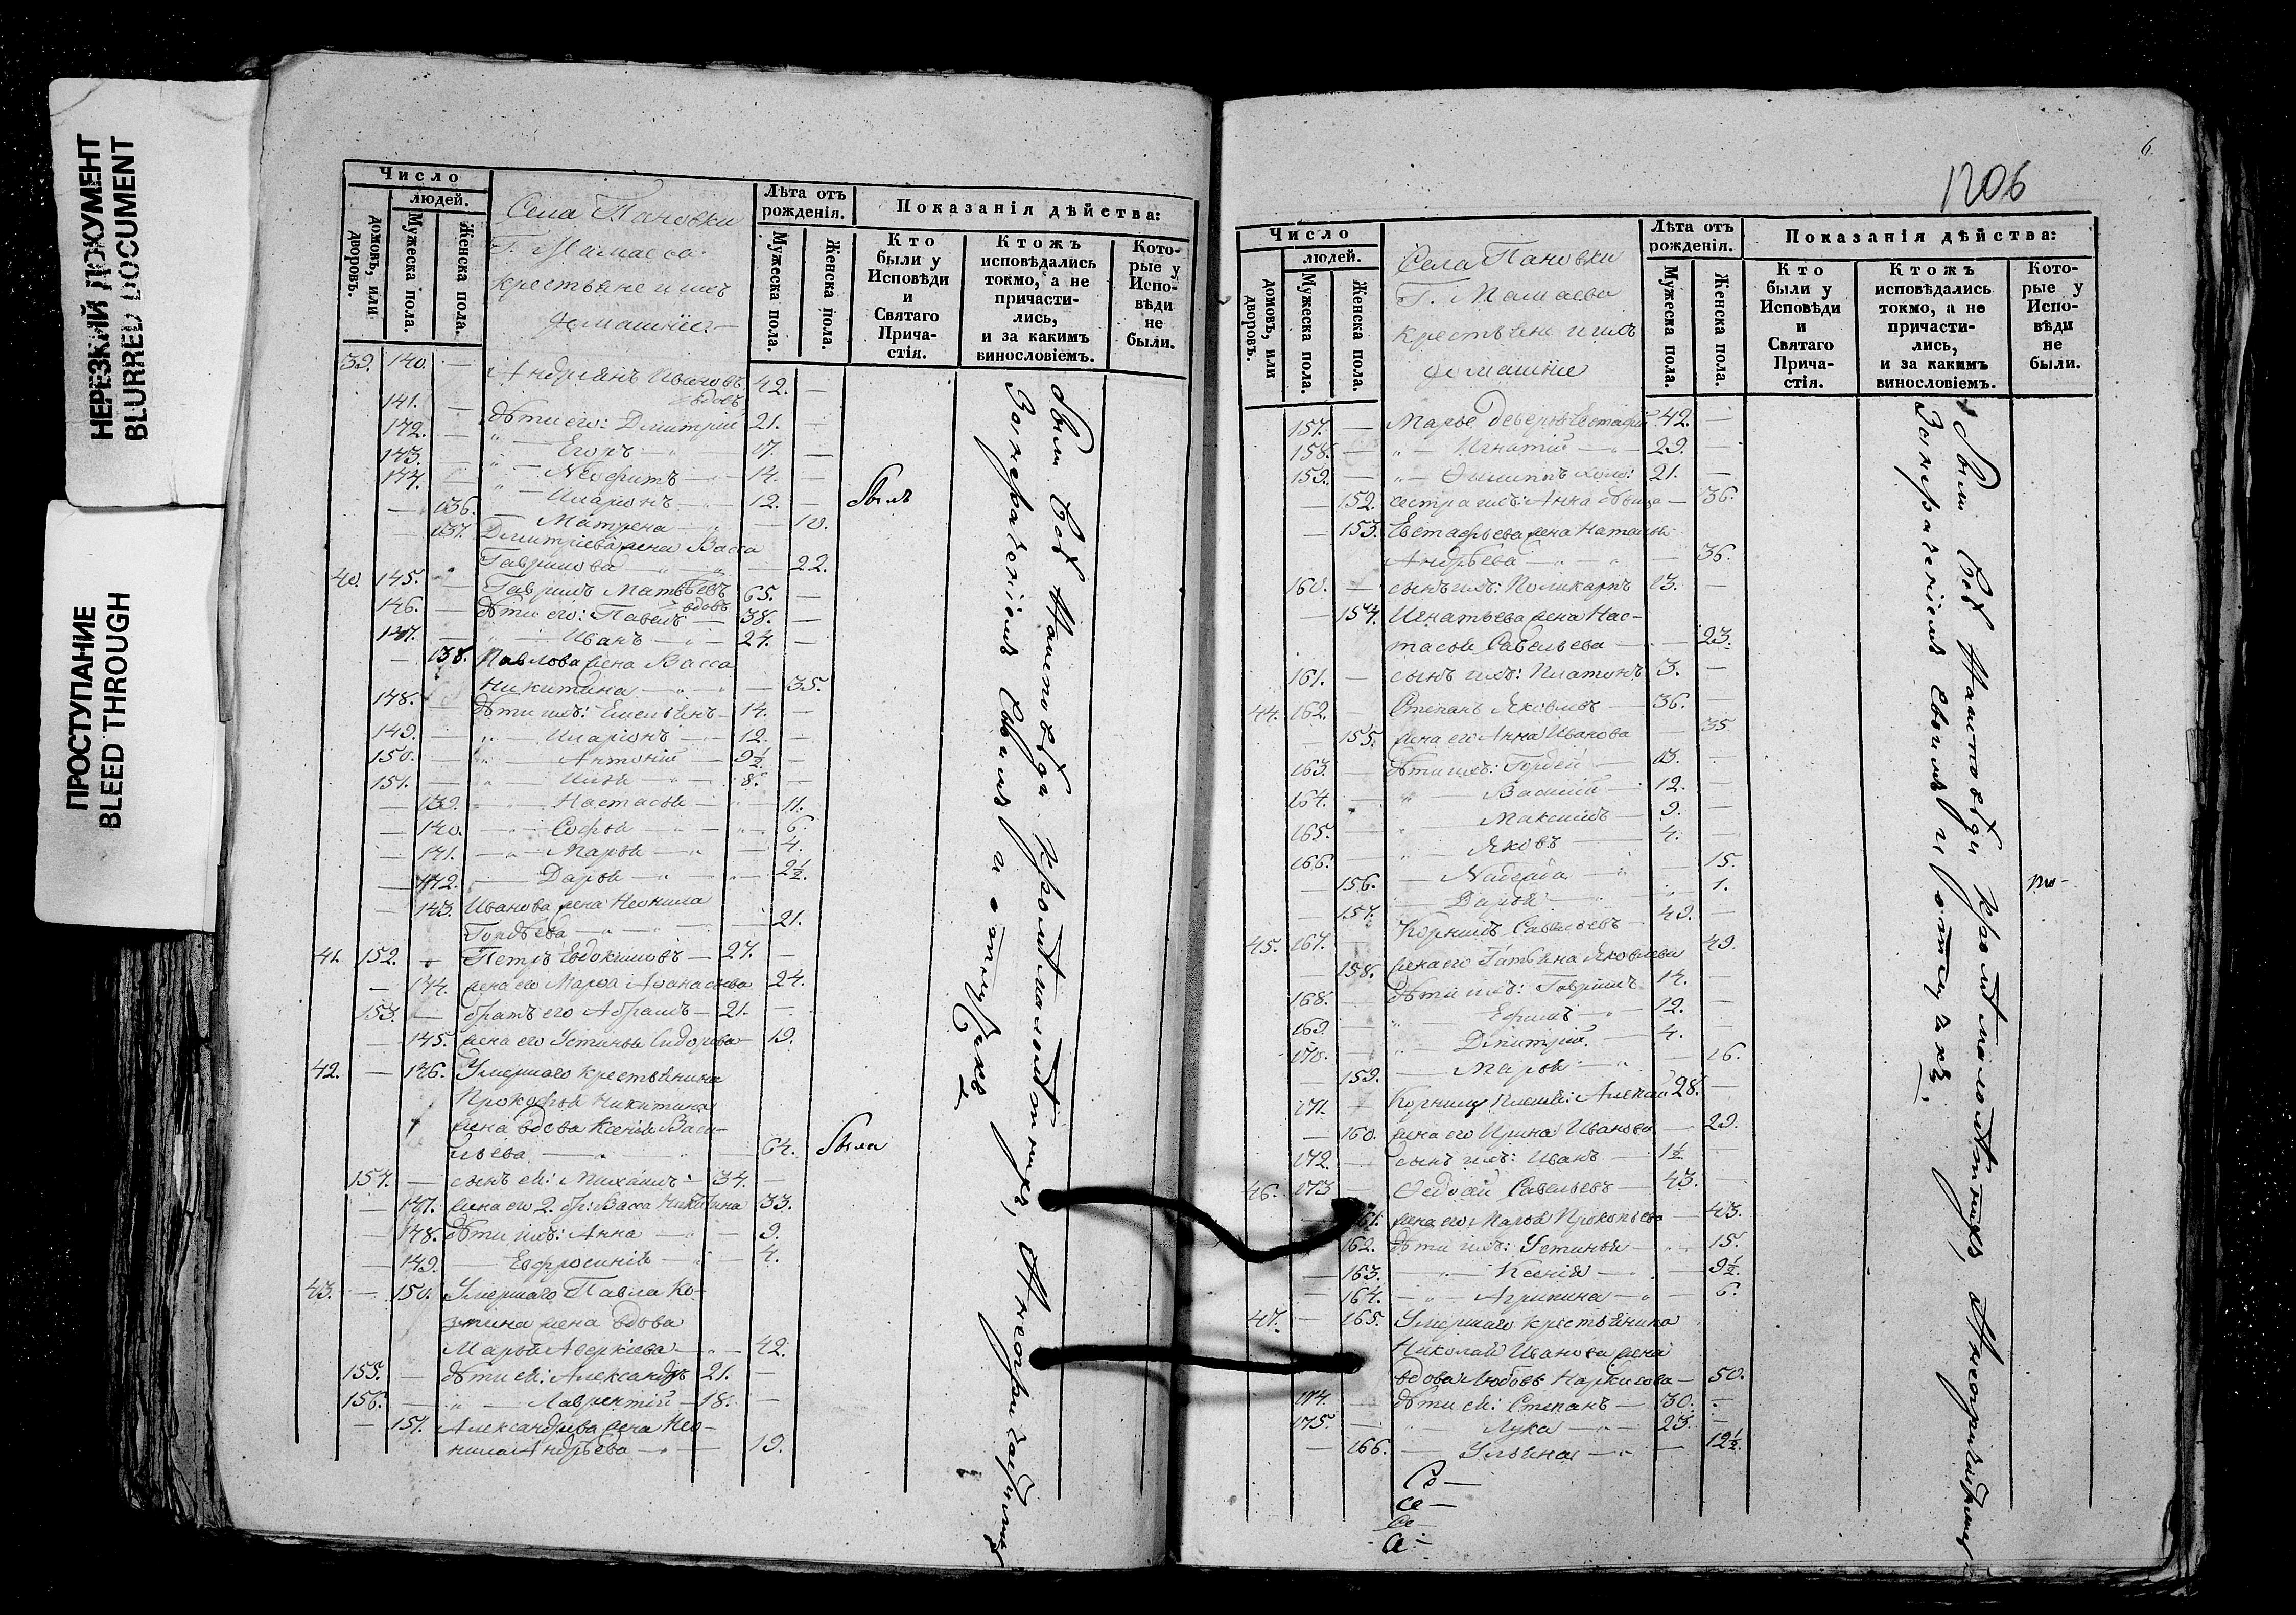 НЕРЕЗКИЙ ДОКУМЕНТ
BLURRED DOCUMENT
ПРОСТУПАНИЕ
BLEED THROUGH
Число
людей.
домовъ, или дворовъ.
Мужеска пола.
Женска пола.
Села Пановки
Г.
крестьяне и ихъ
домашніе
Лѣта отъ рожденія.
Мужеска пола.
Женска пола.
Показанія дѣйства:
Кто были у Исповѣди и Святаго Причастія.
Ктожъ исповѣдались токмо, а не причастились, и за какимъ винословіемъ.
Которые у Исповѣди не были.
39. 140. — Андріянъ Ивановъ вдовъ 42. —
141. — дѣти его: Димитрій 21. —
142. — Егоръ 17. —
143. — Неофитъ 14. —
144. — Иларіонъ 12. — былъ
— 136. Матрена — 10.
— 137. Димитріева жена Васса
Гаврилова — 22.
40. 145. Гаврилъ Матвѣевъ вдовъ 65. —
146. — дѣти его: Павелъ 38. —
147. — Иванъ 24. —
— 138. Павлова жена Васса
Никитина — 35.
148. дѣти ихъ: Емельянъ 14. —
149. — Иларіонъ 12. —
150. — Антоній 9½ —
151. — Илья 8. —
— 139. Настасья 11.
— 140. Софья 6.
— 141. Марья 4.
— 142. Дарья 2½.
— 143. Иванова жена Неонила
Гордѣева 21.
41. 152. — Петръ Евдокимовъ 27. —
— 144. жена его Марѳа Аѳанасьева 24.
153. — братъ его Абрамъ 21. —
— 145. жена его Устинья Сидорова 19.
42. — 146. Умершаго крестьянина
Прокофья Никитина
жена вдова Ксенія Васи-
льева 64. была
154. — сынъ ей: Михаилъ 34. —
— 147. жена его 2. бр: Васса Никитина 33.
— 148. дѣти ихъ: Анна 9.
— 149. — Евфросинія 4.
43. — 150. Умершаго Павла Ко-
жена вдова
Марья Аверкіева 42.
155. — дѣти ей: Александръ 21. —
156. — Лаврентій 18. —
— 151. Александрова жена Нео-
нила Андрѣева 19.
6.
1206
Число
людей.
домовъ, или дворовъ.
Мужеска пола.
Женска пола.
Села Пановки
Г. Мамаева
крестьяне и ихъ
домашніе
Лѣта отъ рожденія.
Мужеска пола.
Женска пола.
Показанія дѣйства:
Кто были у Исповѣди и Святаго Причастія.
Ктожъ исповѣдались токмо, а не причастились, и за какимъ винословіемъ.
Которые у Исповѣди не были.
157. — Марье деверья Евстафій 42. —
158. — Игнатій 29. —
159. — Филиппъ холо: 21. —
— 152. сестра ихъ: Анна дѣвица 36.
— 153. Евстафьева жена Наталья
Андрѣева 36.
160. — сынъ ихъ: Поликарпъ 13. —
— 154. Игнатьева жена Нас-
тасья Савельева 23.
161. — сынъ ихъ: Платонъ 3. —
44. 162. — Степанъ Яковлевъ 36. —
— 155. жена его Анна Иванова 35
163. — дѣти ихъ: Гордей 13. —
164. — Василій 12. —
165. — Максимъ 9. —
166. — Яковъ 4. —
— 156. Надежда 15.
— 157. Дарья 1.
45. 167. Корнилъ Савельевъ 49. —
— 158. жена его Татьяна Яковлева 49.
168. — дѣти ихъ: Гаврилъ 14.
169. — Ефимъ 12. —
170. — Димитрій 4. —
— 159. Марья 16.
171. — Корнилу племян: Алексѣй 28. —
— 160. жена его Ирина Иванова 29.
172. — сынъ ихъ: Иванъ 1½ —
46. 173 — Ѳедосій Савельевъ 43. —
— 161. жена его Марья Прокопьева 43.
162. дѣти ихъ: Устинья 15.
— 163. Ксенія 9½.
— 164. Агрипина 6.
47. — 165. Умершаго крестьянина
Николая Иванова жена
вдова Любовь 50.
174. — дѣти ей: Степанъ 30. —
175. — Лука 23. —
— 166. Ульяна 12½.